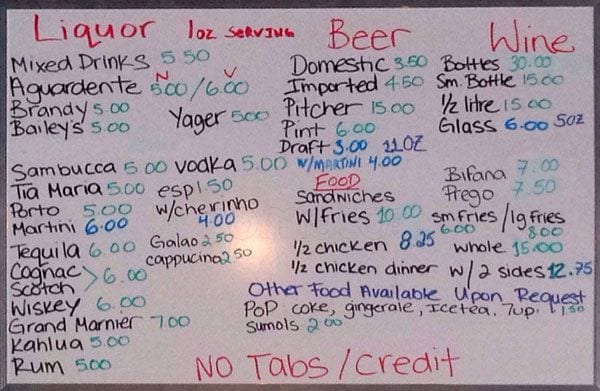 Liquor 1oz SERVING
Mixed Drinks 5 50
Aguardente N 500 / V 6.00
Brandy 5.00
Bailey's 5.00
Yager 500
Sambucca 5.00 vodka 5.00 w/MARTINI 4.00
Tia Maria 5.00 esp 1 50
Porto 5.00 w/cherinho 4.00
Martini 6.00
Tequila 6.00
Galao 2 50
cappucino 2 50
Cognac
Scotch > 6.00
Wiskey 6.00
Grand Marnier 7.00
Kahlua 5.00
Rum 5.00
Beer
Domestic 3.50
Imported 4.50
Pitcher 15.00
Pint 6.00
Draft 3.00 11 OZ
Wine
Bottles 30.00
Sm. Bottle 15.00
1/2 litre 15.00
Glass 6.00 5oz
FOOD
Sandwiches
w/Fries 10.00
Bifana 7.00
Prego 7.50
sm fries / lg fries
6.00 8.00
1/2 chicken 8.25 whole 15.00
1/2 chicken dinner w/2 sides 12.75
Other Food Available Upon Request
POP coke, gingerale, Icetea, 7up. 1 50
Sumols 2 00
NO Tabs / Credit